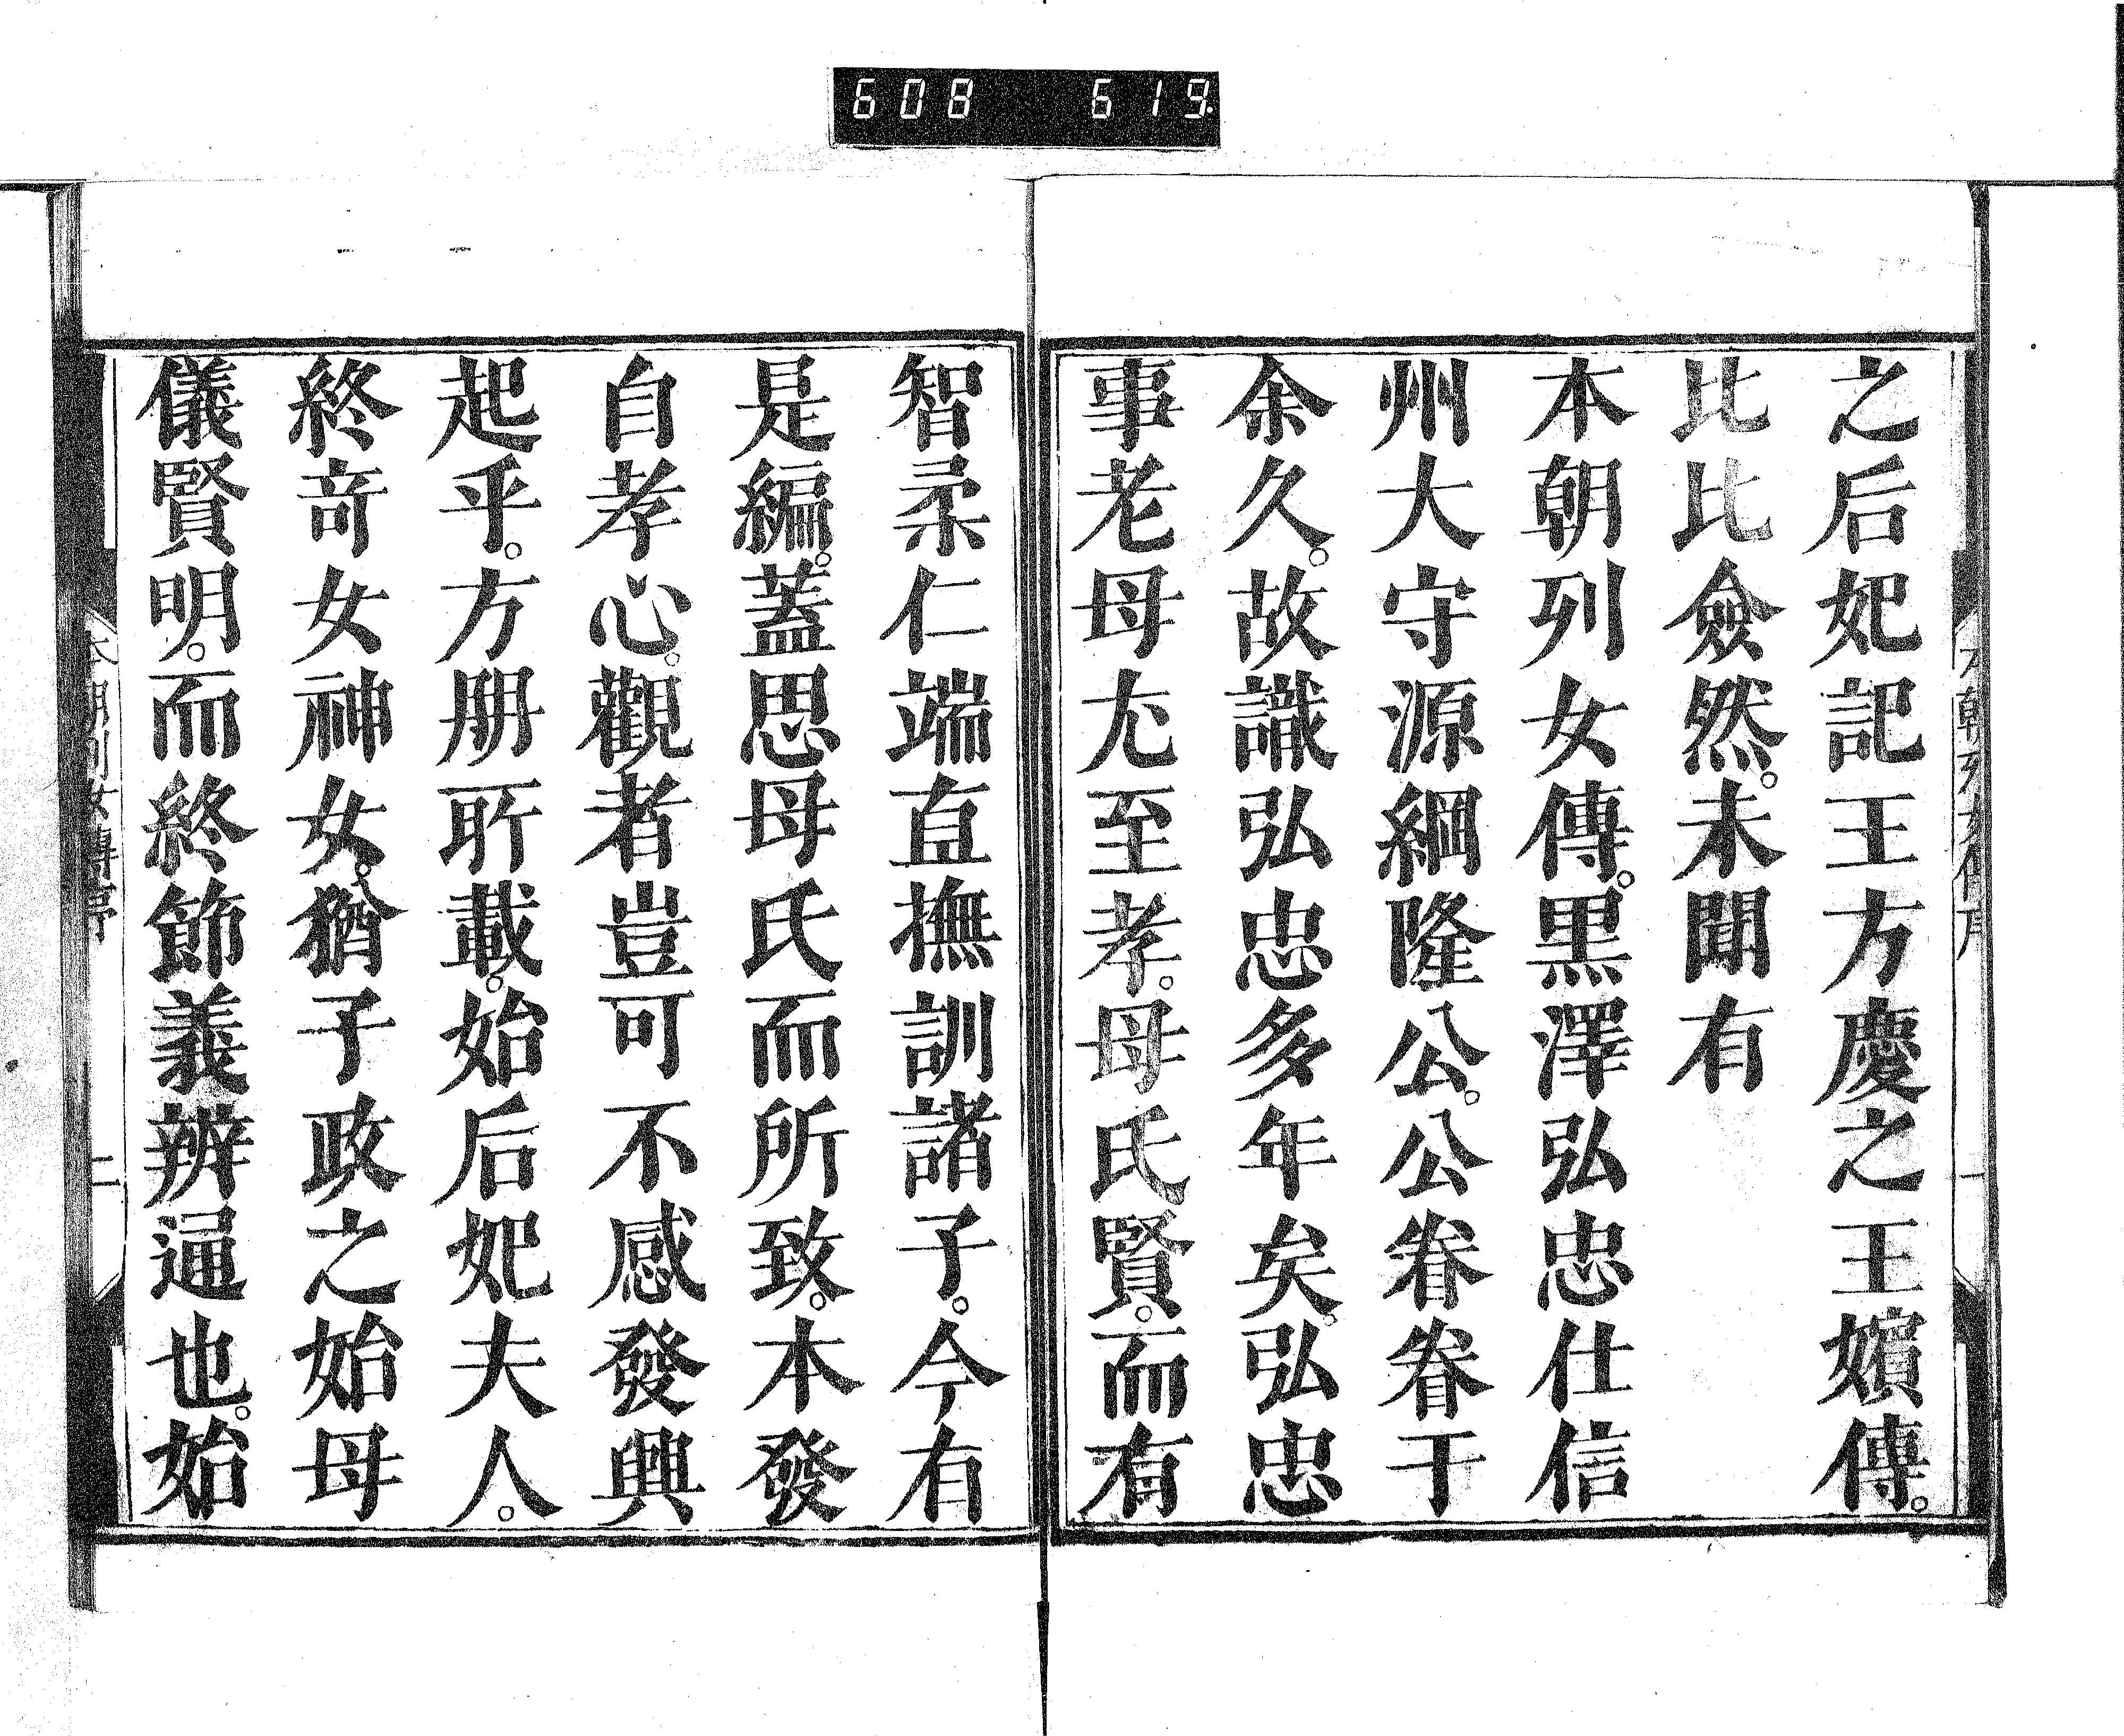 608 619.
之后妃記王方慶之王嬪傳。
比比僉然。未聞有
本朝列女傳。黒澤弘忠仕信
州大守源綱隆公。公眷眷于
余久。故識弘忠多年矣。弘忠
事老母尤至孝。母氏賢。而有
智柔仁端直撫訓諸子。今有
是編。蓋思母氏而所致。本發
自孝心。觀者豈可不感發興
起乎。方册所載。始后妃夫人。
終竒女神女。猶子政之始母
儀賢明。而終節義辨逼也。始
本朝列女傳序
二